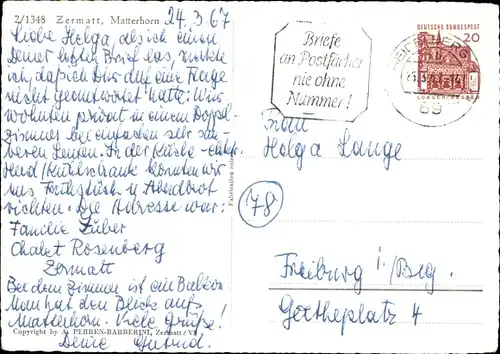 2/1348 Zermatt, Matterhorn
24.3.67
Liebe Helga, als ich einen
Deiner letzten Briefe las, merkte
ich, daß ich Dir auf eine Frage
nicht geantwortet hatte: Wir
wohnten privat in einem Doppel-
zimmer bei einfachen sehr sau-
beren Leuten. In der Küche - elektr.
Herd/Kühlschrank konnten wir
uns Frühstück u. Abendbrot
richten. Die Adresse war:
Familie Zuber
Chalet Rosenberg
Zermatt
Bei dem Zimmer ist ein Balkon.
Man hat den Blick aufs
Matterhorn. Viele Grüße!
Deine Gutrud.
Copyright by A. PERREN-BARBERINI, Zermatt / VS
Briefe
an Postfächer
nie ohne
Nummer!
DEUTSCHE BUNDESPOST
20
69
Frau
Helga Lange
78
Freiburg i./Brg.
Goetheplatz 4